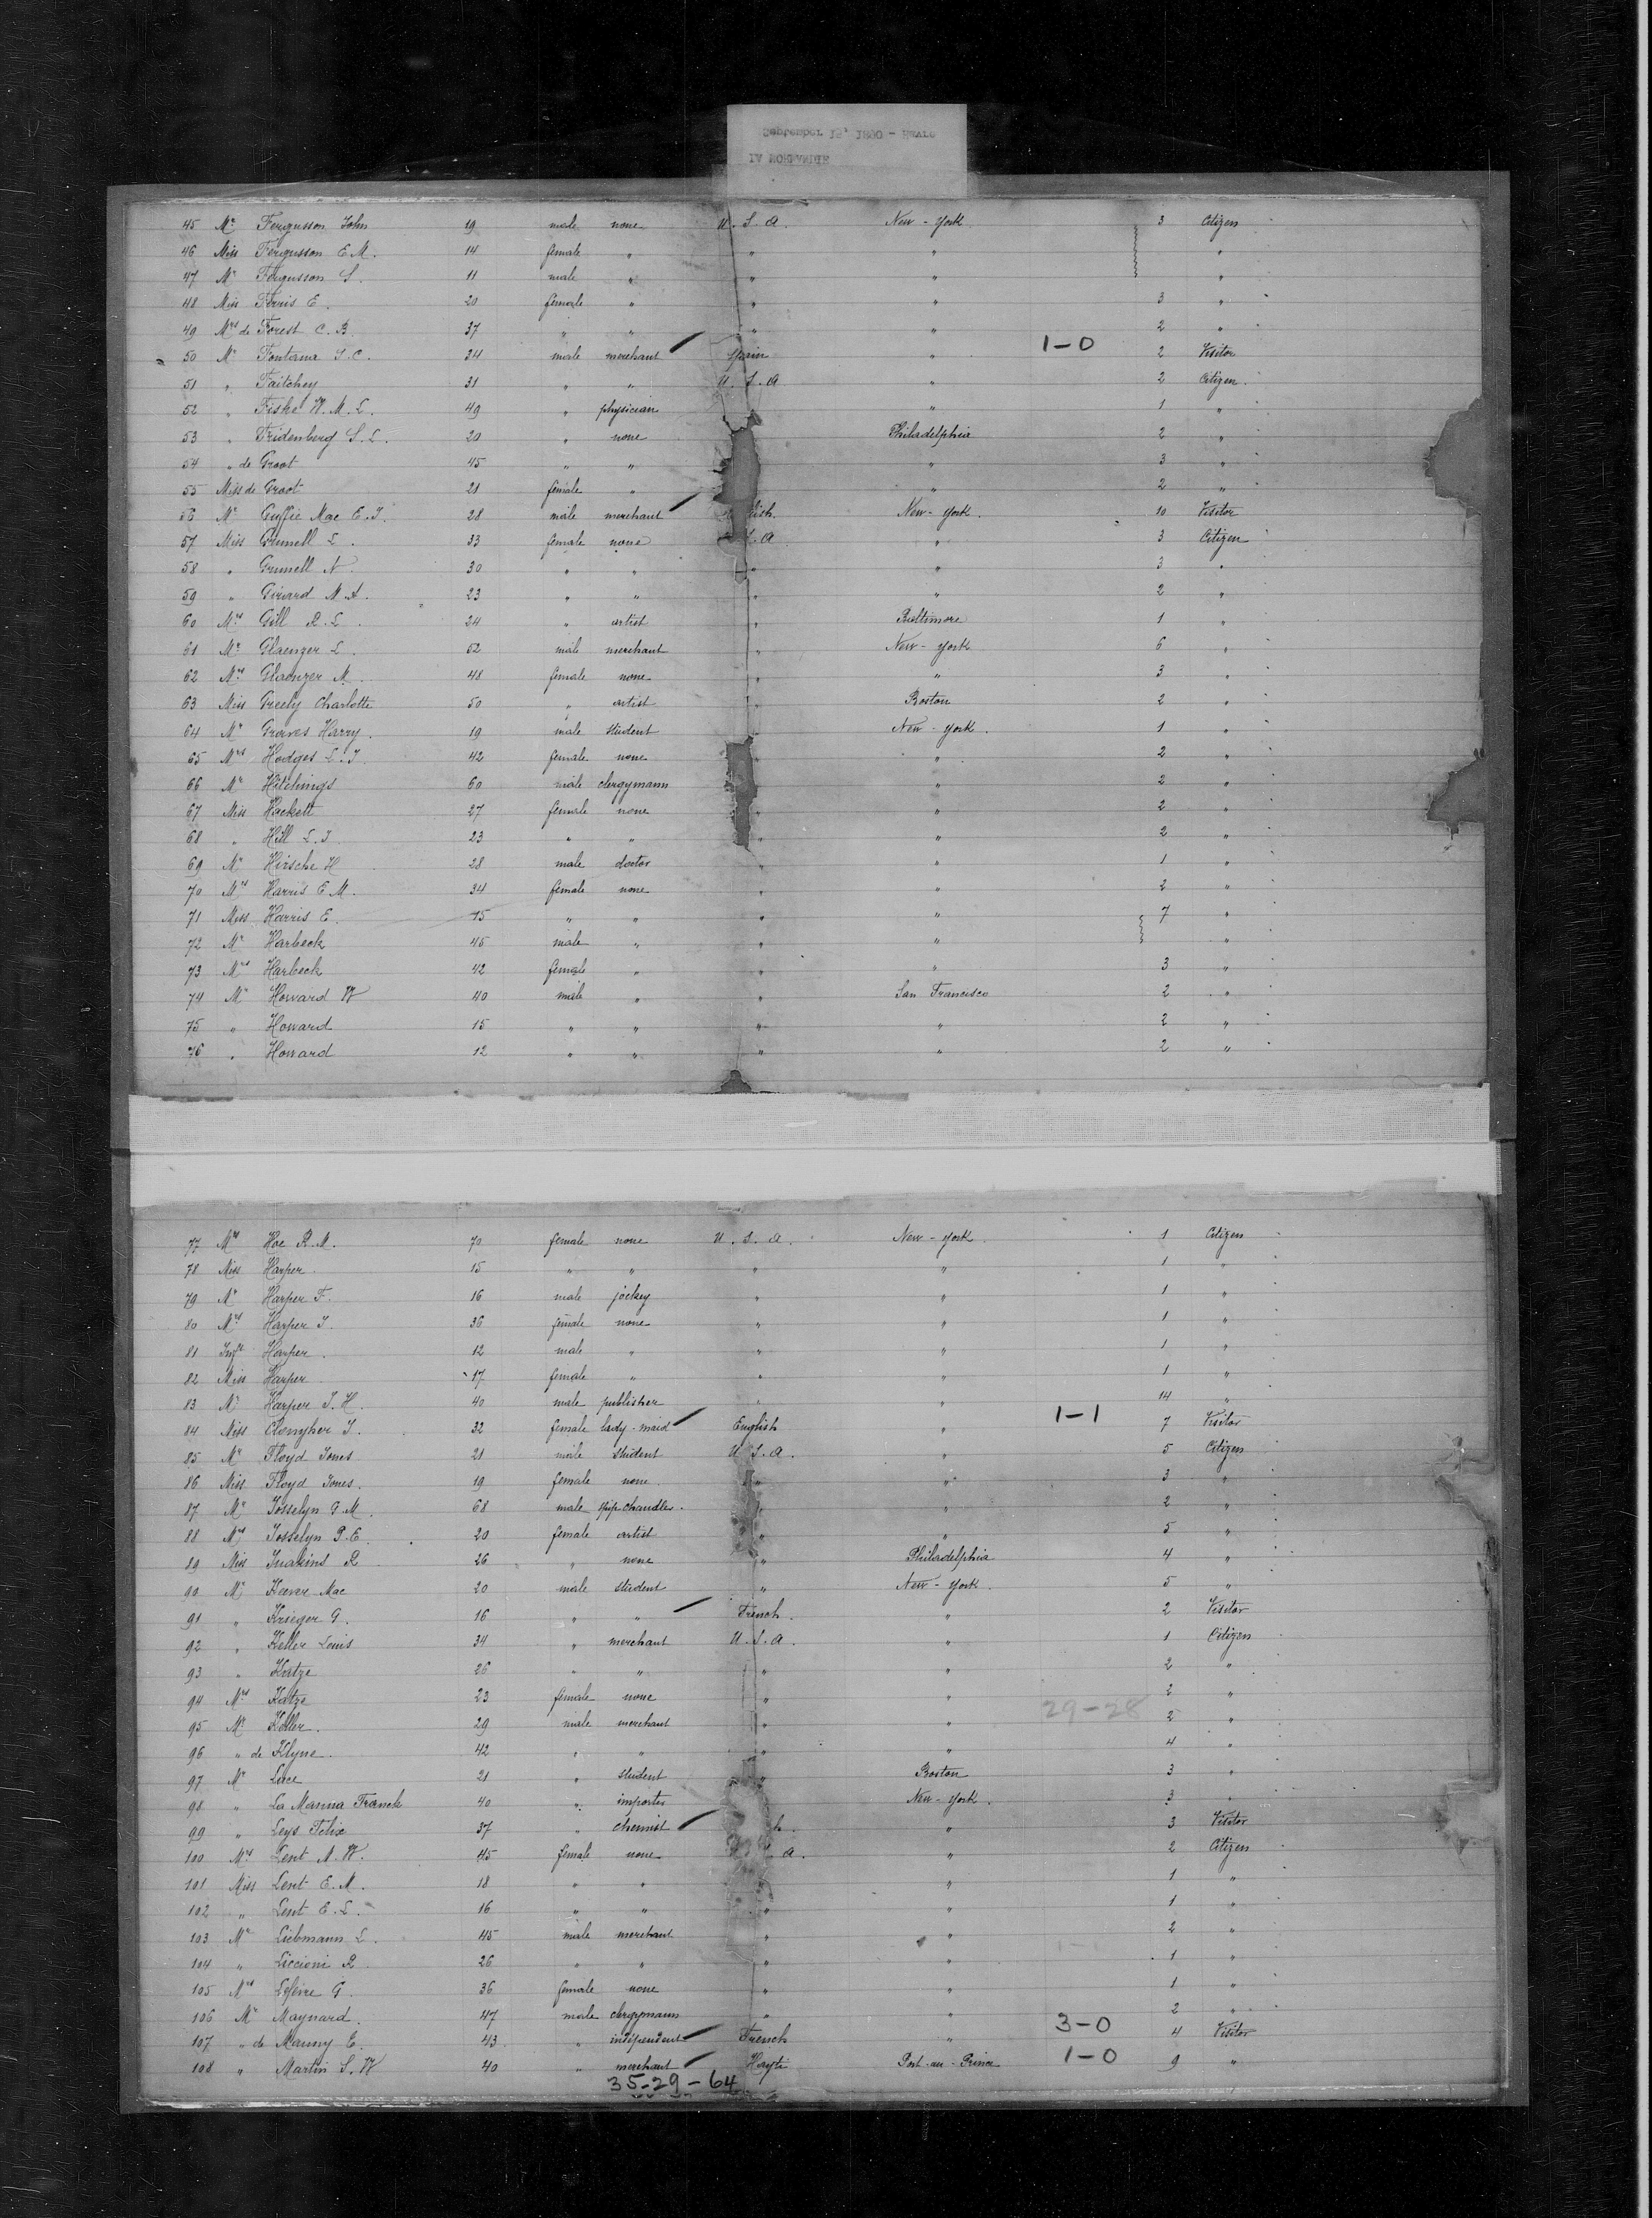 September 15, 1890 - Havre
45 Mr Fergusson John 19 male none U.S.A. New-York 3 Citizen
46 Miss Fergusson E.M. 14 female " " " "
47 Mr Fergusson S. 11 male " " " "
48 Miss Ferris E. 20 female " " " 3 "
49 Mrs de Forest C.B. 37 " " " " 2 "
1-0
50 Mr Fontana S.C. 34 male merchant Spain " 2 Visitor
51 " Faitchey 31 " " U.S.A. " 2 Citizen
52 " Fiske W.M.L. 49 " physician " 1 "
53 " Fridenberg S.L. 20 " none Philadelphia 2 "
54 " de Groot 45 " " " 3 "
55 Miss de Groot 21 female " " 2 "
56 Mr Guffie Mac E.J. 28 male merchant lish New-York 10 Visitor
57 Miss Grunell L. 33 female none S.A. " 3 Citizen
58 " Grunell N. 30 " " " " 3 "
59 " Girard M.A. 23 " " " " 2 "
60 Mrs Gill R.L. 24 " artist " Baltimore 1 "
61 Mr Glaenzer L. 62 male merchant " New-York 6 "
62 Mrs Glaenzer M. 48 female none " " 3 "
63 Miss Greely Charlotte 50 " artist " Boston 2 "
64 Mr Graves Harry 19 male student " New-York 1 "
65 Mrs Hodges L.J. 42 female none " 2 "
66 Mr Hitchings 60 male clergymann " 2 "
67 Miss Hackett 27 female none " " 2 "
68 " Hill L.J. 23 " " " " 2 "
69 Mr Hirsche H 28 male doctor " " 1 "
70 Mrs Harris E.M. 34 female none " " 2 "
71 Miss Harris E. 15 " " " " 7 "
72 Mr Harbeck 45 male " " " "
73 Mrs Harbeck 42 female " " " 3 "
74 Mr Howard W 40 male " " San Francisco 2 "
75 " Howard 15 " " " " 2 "
76 " Howard 12 " " " " 2 "
77 Mrs Hoe R.M. 70 female none U.S.A. New-York 1 Citizen
78 Miss Harper 15 " " " " 1 "
79 Mr Harper F. 16 male jockey " " 1 "
80 Mrs Harper J. 36 female none " " 1 "
81 Inft Harper 12 male " " " 1 "
82 Miss Harper 17 female " " " 1 "
83 Mr Harper J.H. 40 male publisher " " 14 "
1-1
84 Miss J. 32 female lady-maid English " 7 Visitor
85 Mr Floyd Jones 21 male student U.S.A. " 5 Citizen
86 Miss Floyd Jones 19 female none " " 3 "
87 Mr Josselyn G.M. 68 male ship chandler " " 2 "
88 Mrs Josselyn P.E. 20 female artist " " 5 "
89 Miss R 26 " none " Philadelphia 4 "
90 Mr Keever Mac 20 male student " New-York 5 "
91 " Krieger G. 16 " " French " 2 Visitor
92 " Keller Louis 34 " merchant U.S.A. " 1 Citizen
93 " Katze 26 " " " " 2 "
94 Mrs Katze 23 female none " " 2 "
29-28
95 Mr Koller 29 male merchant " " 2 "
96 " de Klyne 42 " " " " 4 "
97 Mr Luce 21 " student " Boston 3 "
98 " La Manna Franck 40 " importer New-York 3 "
99 " Leys Felix 37 " chemist h. " 3 Visitor
100 Mrs Lent N.W. 45 female none A. " 2 Citizen
101 Miss Lent E.M. 18 " " " " 1 "
102 " Lent E.L. 16 " " " " 1 "
103 Mr Liebmann L. 45 male merchant " " 2 "
104 " Liccioni R 26 " " " " 1 "
105 Mrs Lefèvre G. 36 female none " " 1 "
106 Mr Maynard 47 male clergymann " " 2 "
3-0
107 " de Manny E. 43 " indépendent French " 4 Visitor
108 " Martin S.W 40 " merchant Hayti Port-au-Prince 1-0 9 "
35-29-64